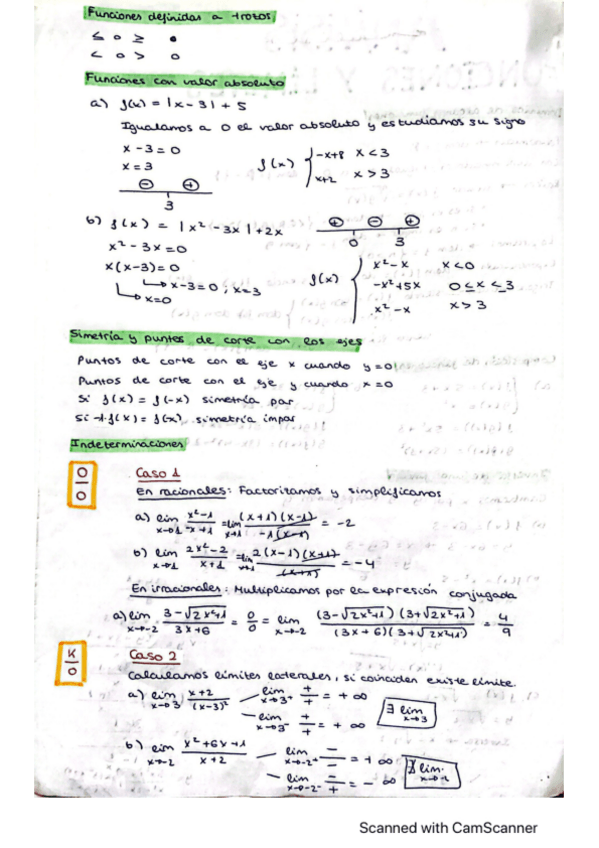 Funciones definidas a trozos
≤ o ≥ •
< o > o
Funciones con valor absoluto
a) f(x) = |x-3| + 5
Igualamos a 0 el valor absoluto y estudiamos su signo
x - 3 = 0
x = 3
f(x) { -x+8 x < 3
x+2 x > 3
⊖ ⊕
3
b) f(x) = |x² - 3x| + 2x
⊕ ⊖ ⊕
0 3
x² - 3x = 0
x(x-3) = 0
x-3=0; x=3
x=0
f(x) { x² - x x < 0
-x² + 5x 0 ≤ x ≤ 3
x² - x x > 3
Simetría y puntos de corte con los ejes
Puntos de corte con el eje x cuando y=0
Puntos de corte con el eje y cuando x=0
Si f(x) = f(-x) simetría par
Si -1·f(x) = f(-x), simetría impar
Indeterminaciones
0/0
Caso 1
En racionales: Factorizamos y simplificamos
a) lim x→1 x²-1/-x+1 = lim x→1 (x+1)(x-1)/-1(x-1) = -2
b) lim x→-1 2x²-2/x+1 = lim 2(x-1)(x+1)/(x+1) = -4
En irracionales: Multiplicamos por la expresión conjugada
a) lim x→-2 3-√2x²+1/3x+6 = 0/0 = lim x→-2 (3-√2x²+1)(3+√2x²+1)/(3x+6)(3+√2x²+1) = 4/9
K/0
Caso 2
Calculamos límites laterales, si coinciden existe límite.
a) lim x→3 x+2/(x-3)² lim x→3⁺ +/+ = +∞
lim x→3⁻ +/+ = +∞
∃ lim x→3
b) lim x→-2 x²+6x+1/x+2 lim x→-2⁺ -/- = +∞
lim x→-2⁻ -/+ = -∞
∄ lim x→-2
Scanned with CamScanner